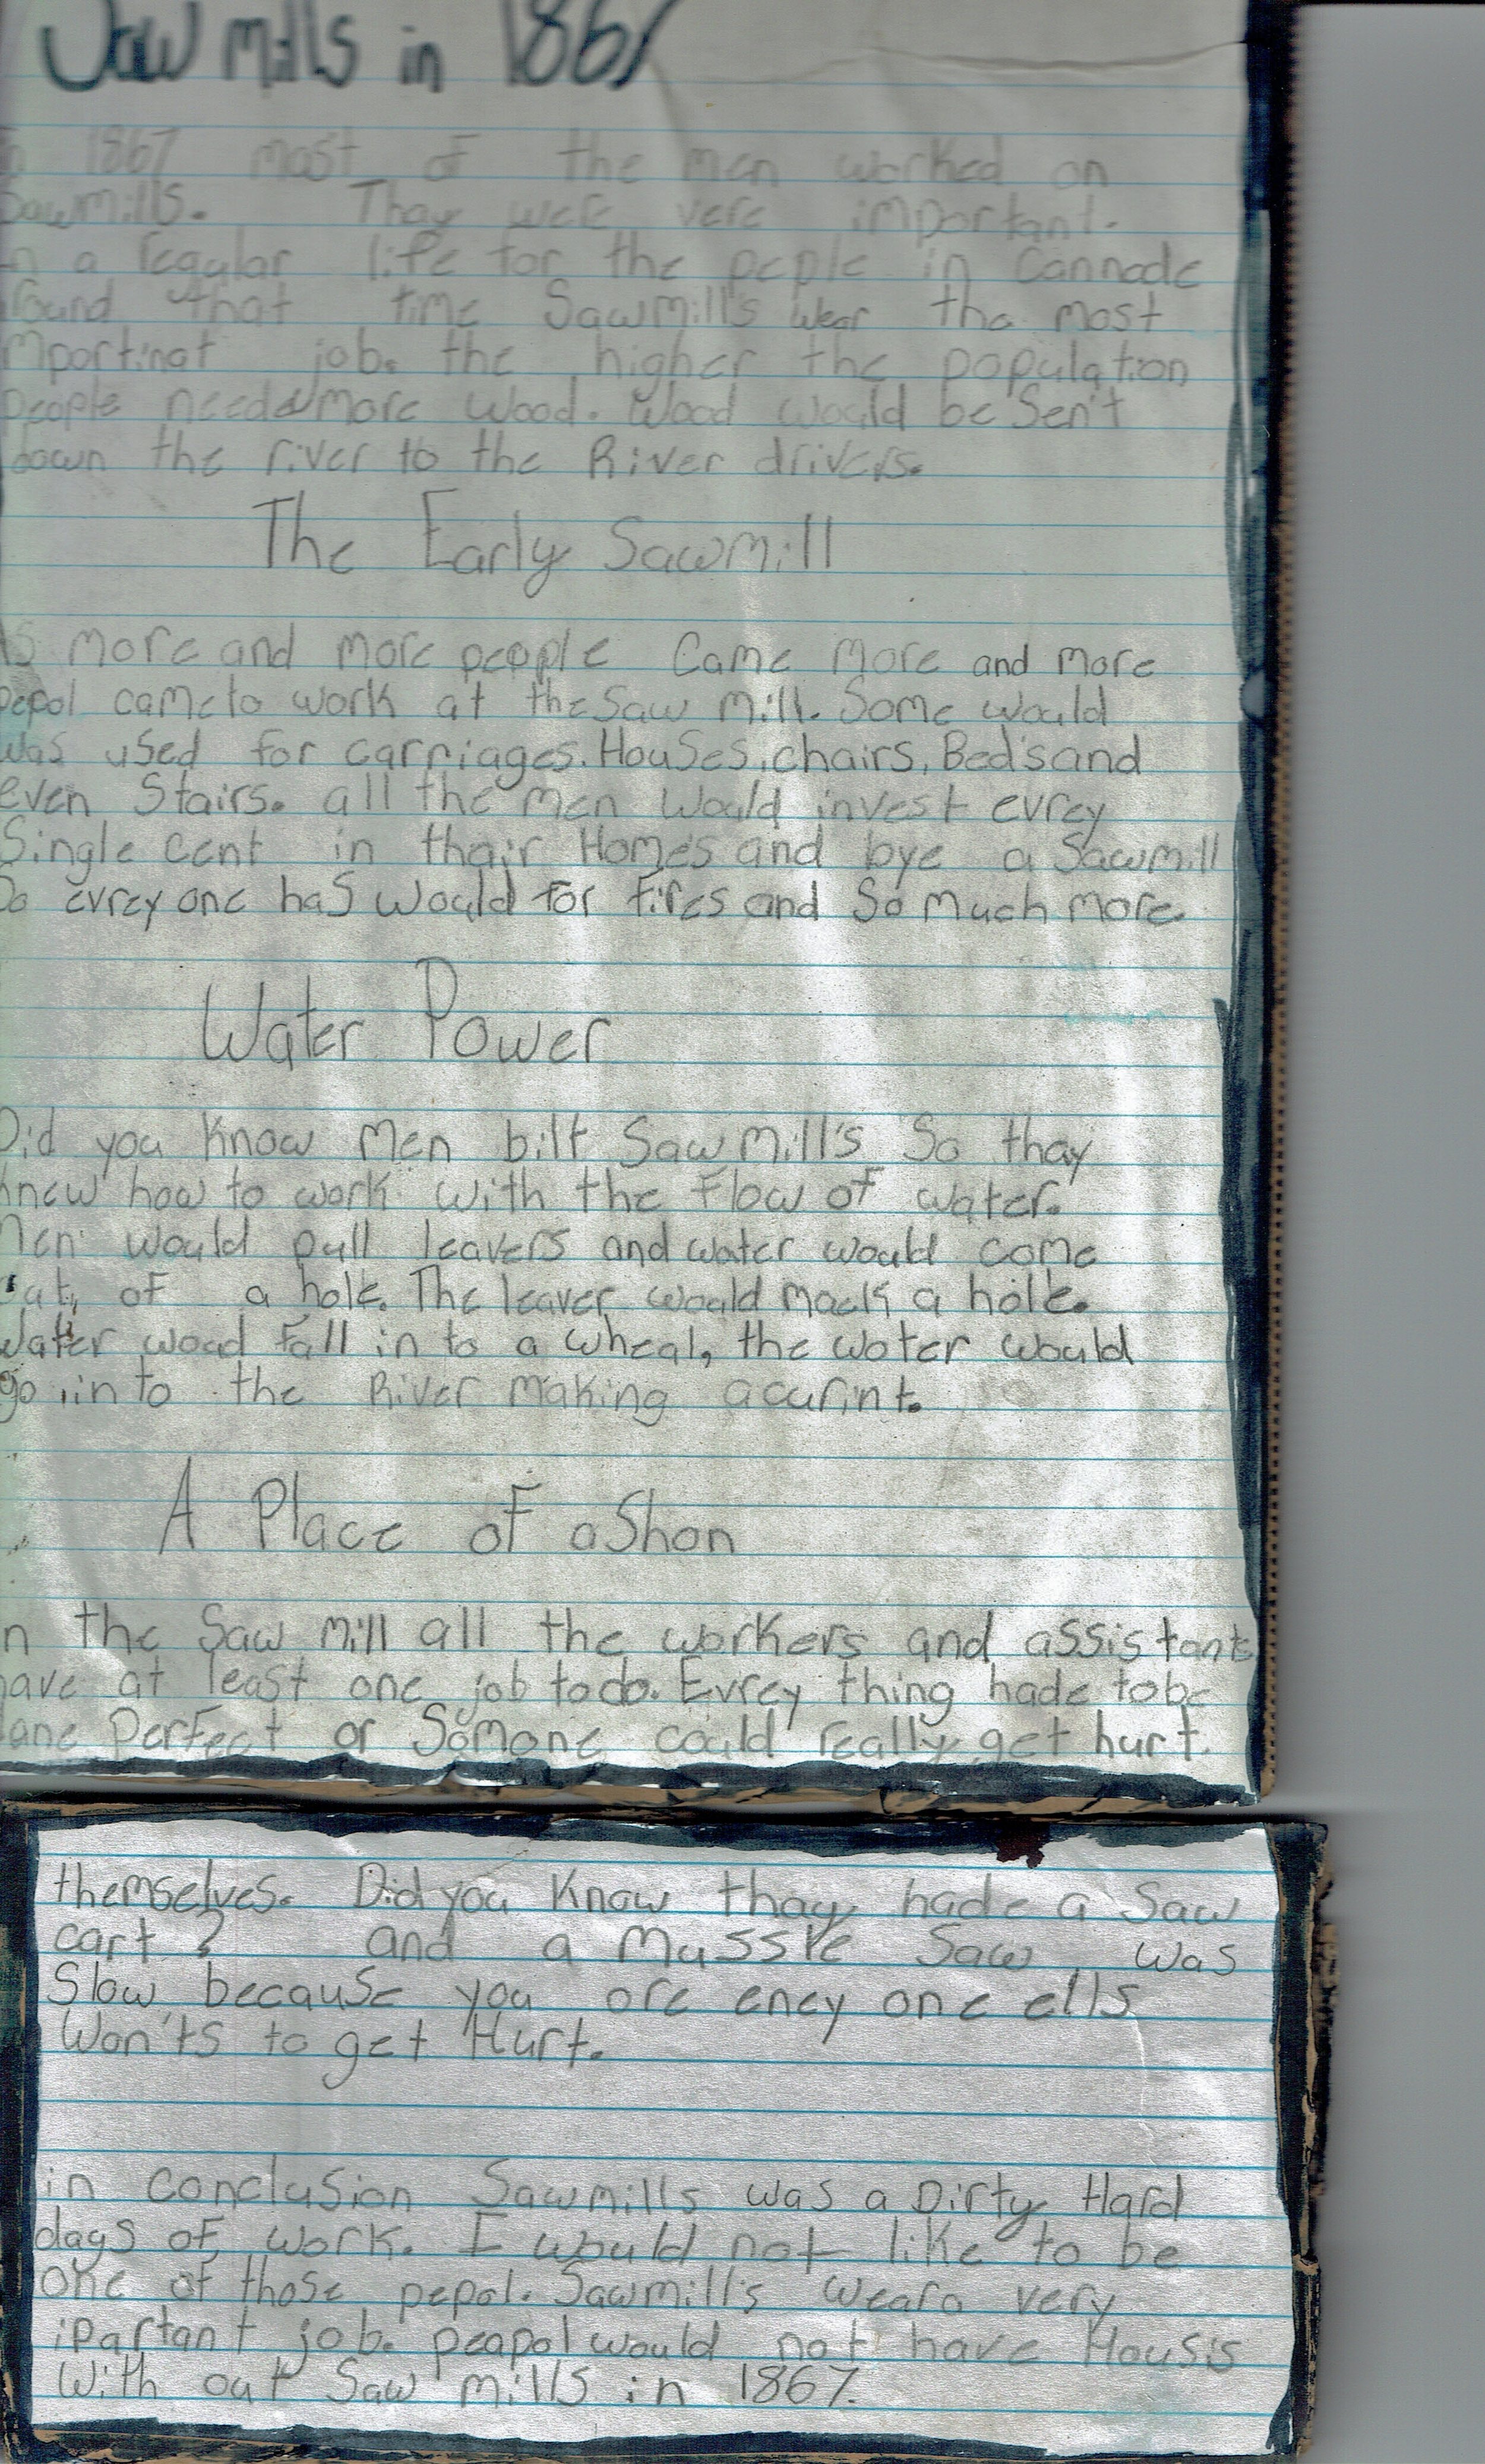 Saw mills in 1867
1867 most of the men worked on
Sawmills. Thay were vere important.
in a regular life for the peple in Cannade
round that time Sawmill's wear the most
mportinat job. the higher the population
people needed more wood. Wood would be Sen't
down the river to the River drivers.
The Early Sawmill
as more and more people Came more and more
pepol came to work at the Saw mill. Some would
was used for carriages. Houses, chairs, Bed's and
even Stairs. all the men would invest evrey
Single cent in thair Home's and bye a Sawmill
So evrey one has would for fires and So much more
Water Power
Did you know Men bilt Saw Mill's So thay
knew how to work with the Flow of water.
Men would pull leavers and water would come
out of a hole. The leaver would mack a hole.
Water woud fall in to a wheal, the water would
go in to the River making acurint.
A Place of aShon
n the Saw mill all the workers and assistants
have at least one job to do. Evrey thing hade to be
dane Perfect or Somone could really get hurt.
themselves. Did you Know thay hade a Saw
cart? and a Mussle Saw was
Slow because you ore eney one ells
Won'ts to get Hurt.
in conclusion Sawmills was a Dirty Hard
days of work. I would not like to be
one of those pepol. Sawmill's weara very
ipartant job. peapol would not have Housis
With out Saw mills in 1867.